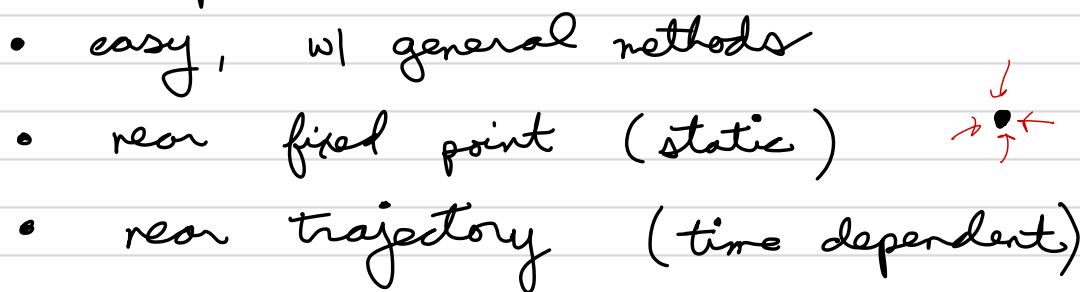 • easy, w/ general methods
• near fixed point (static)
• near trajectory (time dependent)